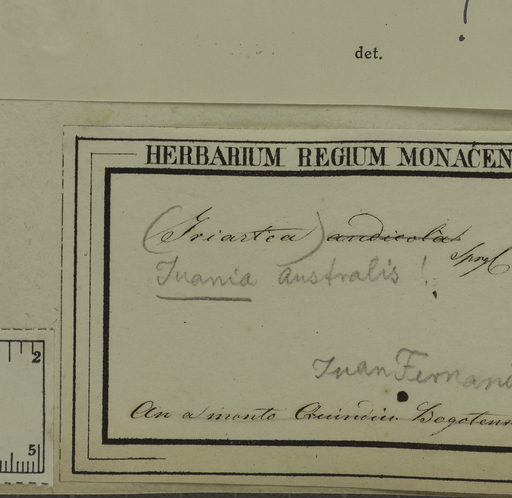 det.
HERBARIUM REGIUM MONACEN
(Iriartea) andicola Sprgl
Juania australis !
Juan Fernand
An a monte Quindiu Bogotens
2
5